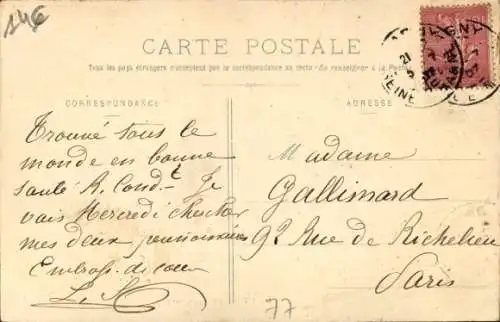 146
CARTE POSTALE
Tous les pays étrangers n'acceptent pas la correspondance au recto (Se renseigner à la Poste)
CORRESPONDANCE
ADRESSE
Trouvé tous le
monde en bonne
santé R. Condt Je
vais Mercredi chercher
mes deux pensionnaires
Embrass. de cœur
Madame
Gallimard
92 Rue de Richelieu
Paris
77